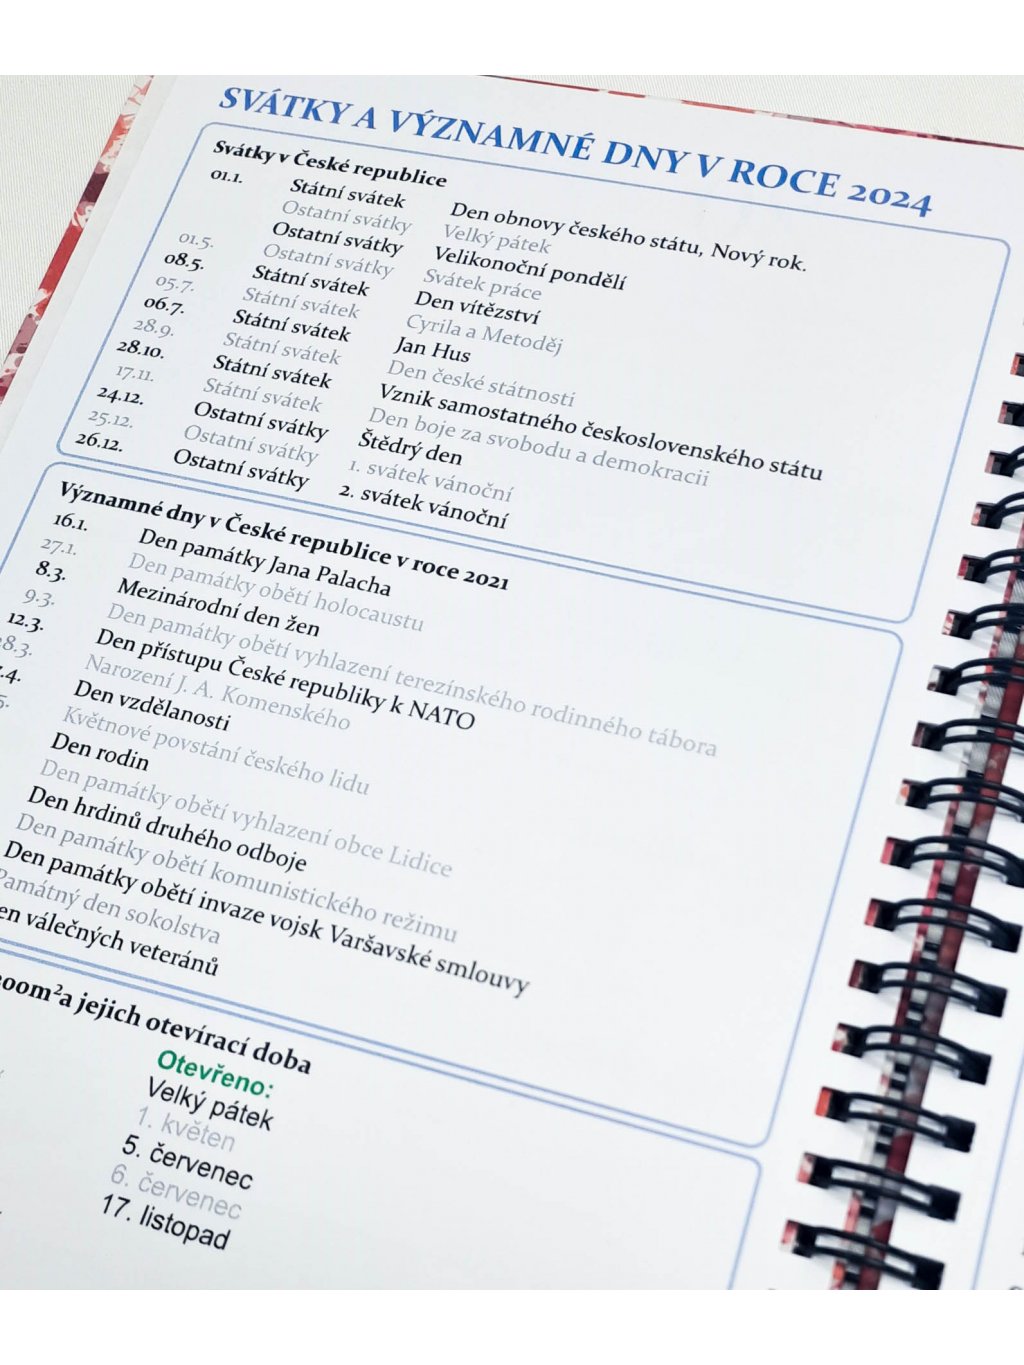 SVÁTKY A VÝZNAMNÉ DNY V ROCE 2024
Svátky v České republice
01.1. Státní svátek Den obnovy českého státu, Nový rok.
Ostatní svátky Velký pátek
Ostatní svátky Velikonoční pondělí
01.5. Ostatní svátky Svátek práce
08.5. Státní svátek Den vítězství
05.7. Státní svátek Cyrila a Metoděj
06.7. Státní svátek Jan Hus
28.9. Státní svátek Den české státnosti
28.10. Státní svátek Vznik samostatného československého státu
17.11. Státní svátek Den boje za svobodu a demokracii
24.12. Ostatní svátky Štědrý den
25.12. Ostatní svátky 1. svátek vánoční
26.12. Ostatní svátky 2. svátek vánoční
Významné dny v České republice v roce 2021
16.1. Den památky Jana Palacha
27.1. Den památky obětí holocaustu
8.3. Mezinárodní den žen
9.3. Den památky obětí vyhlazení terezínského rodinného tábora
12.3. Den přístupu České republiky k NATO
28.3. Narození J. A. Komenského
.4. Den vzdělanosti
5. Květnové povstání českého lidu
Den rodin
Den památky obětí vyhlazení obce Lidice
Den hrdinů druhého odboje
Den památky obětí komunistického režimu
Den památky obětí invaze vojsk Varšavské smlouvy
Památný den sokolstva
en válečných veteránů
00m² a jejich otevírací doba
Otevřeno:
Velký pátek
1. květen
5. červenec
6. červenec
17. listopad